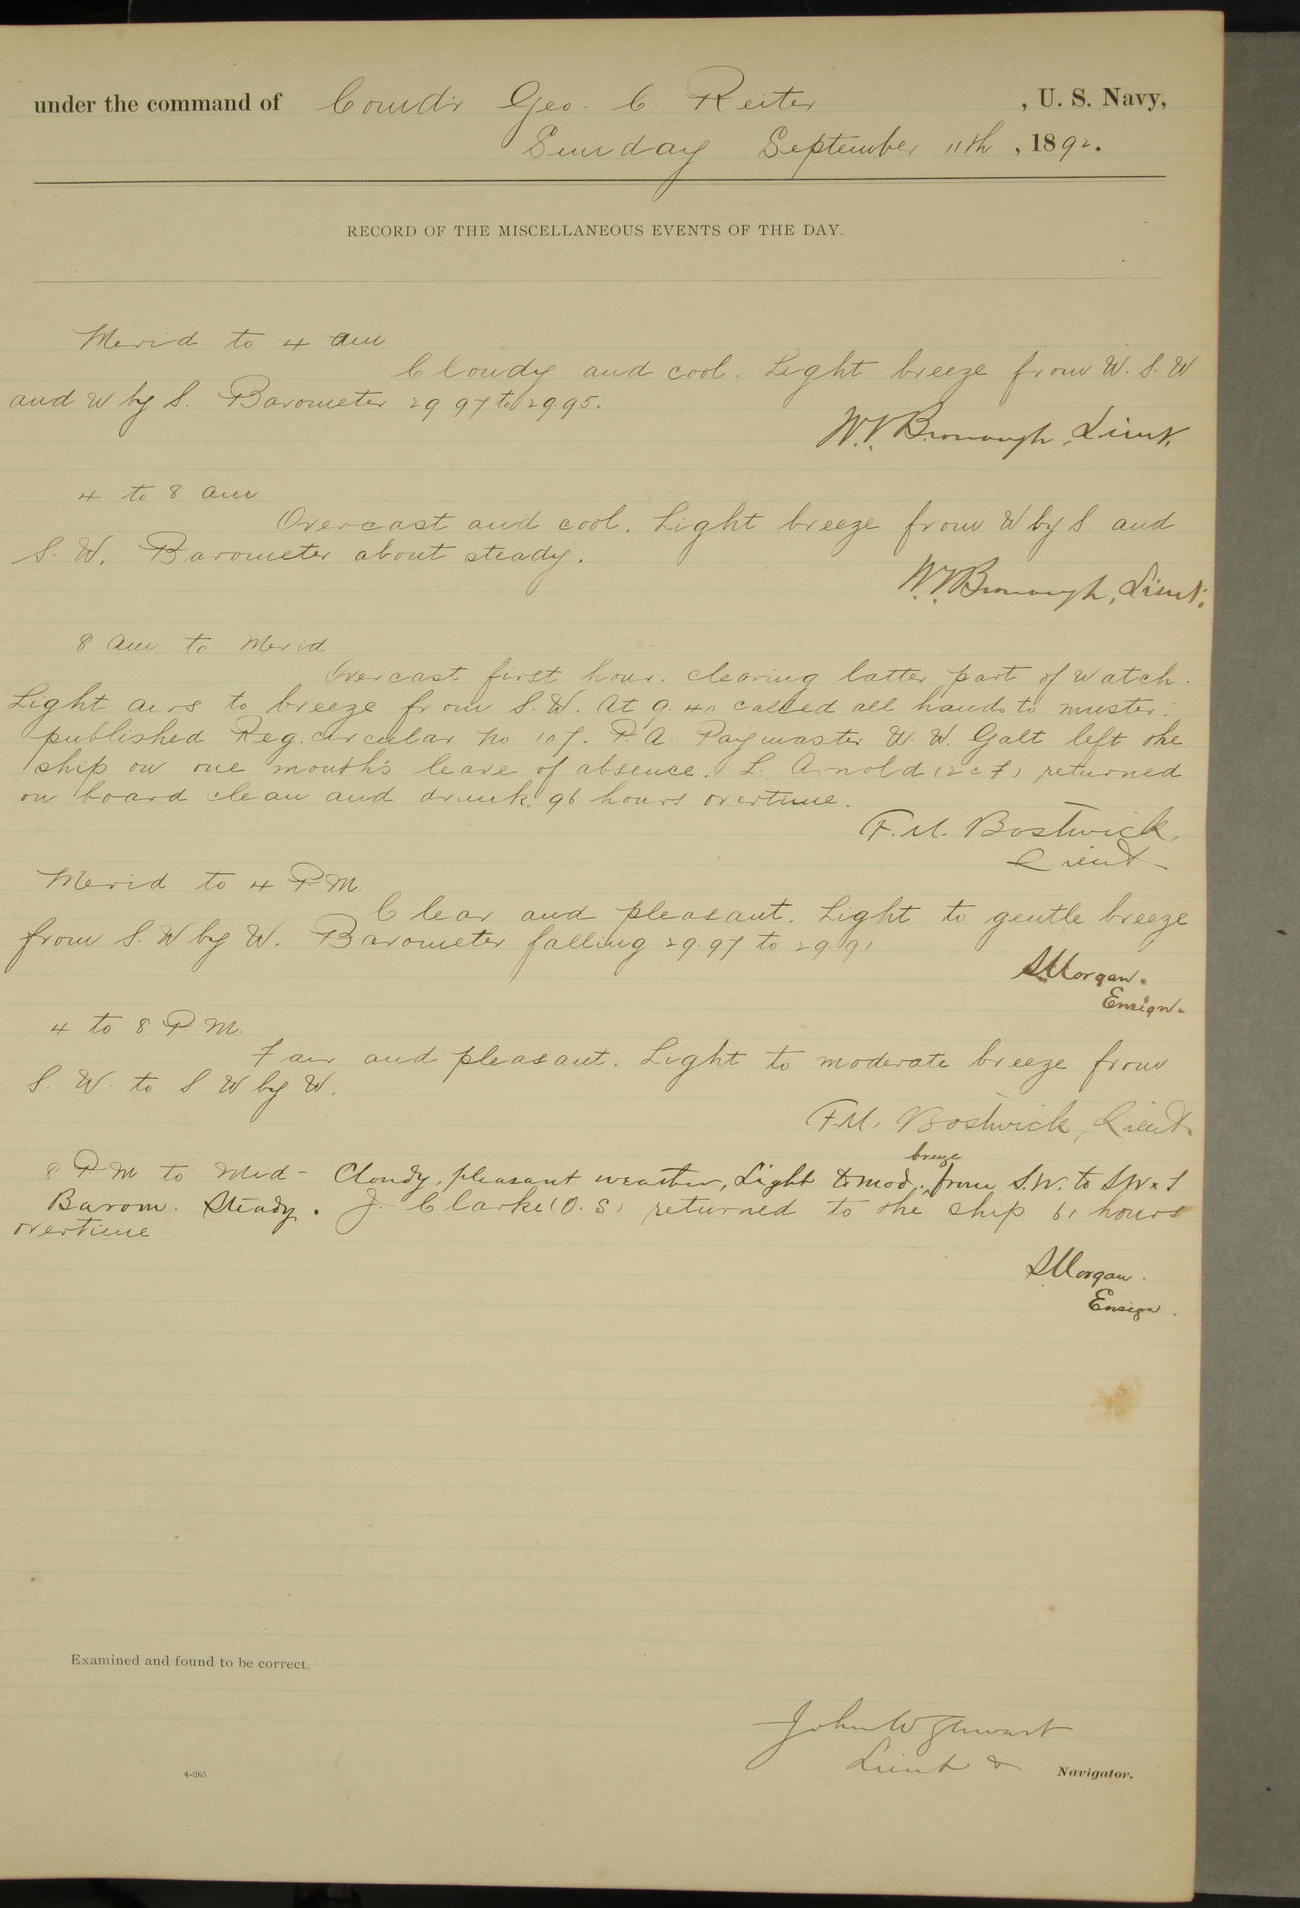 under the command of Comd'r Geo. C. Reiter , U. S. Navy,
Sunday September 11th , 1892.
RECORD OF THE MISCELLANEOUS EVENTS OF THE DAY.
Merid to 4 am
Cloudy and cool. Light breeze from W. S. W
and W by S. Barometer 29.97 to 29.95.
W.V. Bronaugh, Lieut.
4 to 8 am
Overcast and cool. Light breeze from W by S. and
S. W. Barometer about steady.
W.V. Bronaugh, Lieut.
8 am to Merid
Overcast first hour. clearing latter part of watch.
Light airs to breeze from S. W. At 9.40 called all hands to muster.
published Reg. circular No 107. P. A. Paymaster W. W. Galt left the
ship on one month's leave of absence. L. Arnold (2 c F) returned
on board clean and drunk, 96 hours overtime.
F. M. Bostwick,
Lieut
Merid to 4 P.M.
Clear and pleasant. Light to gentle breeze
from S. W by W. Barometer falling 29.97 to 29.91
S Morgan.
Ensign.
4 to 8 P M.
Fair and pleasant. Light to moderate breeze from
S. W. to S W by W.
F. M. Bostwick, Lieut.
8 P M to Mid - Cloudy, pleasant weather, Light to mod. breeze from S.W. to SW x S
Barom. Steady. J. Clarke (O. S) returned to the ship 61 hours
overtime
S Morgan.
Ensign.
Examined and found to be correct.
John W Stewart
Lieut & Navigator.
4-265